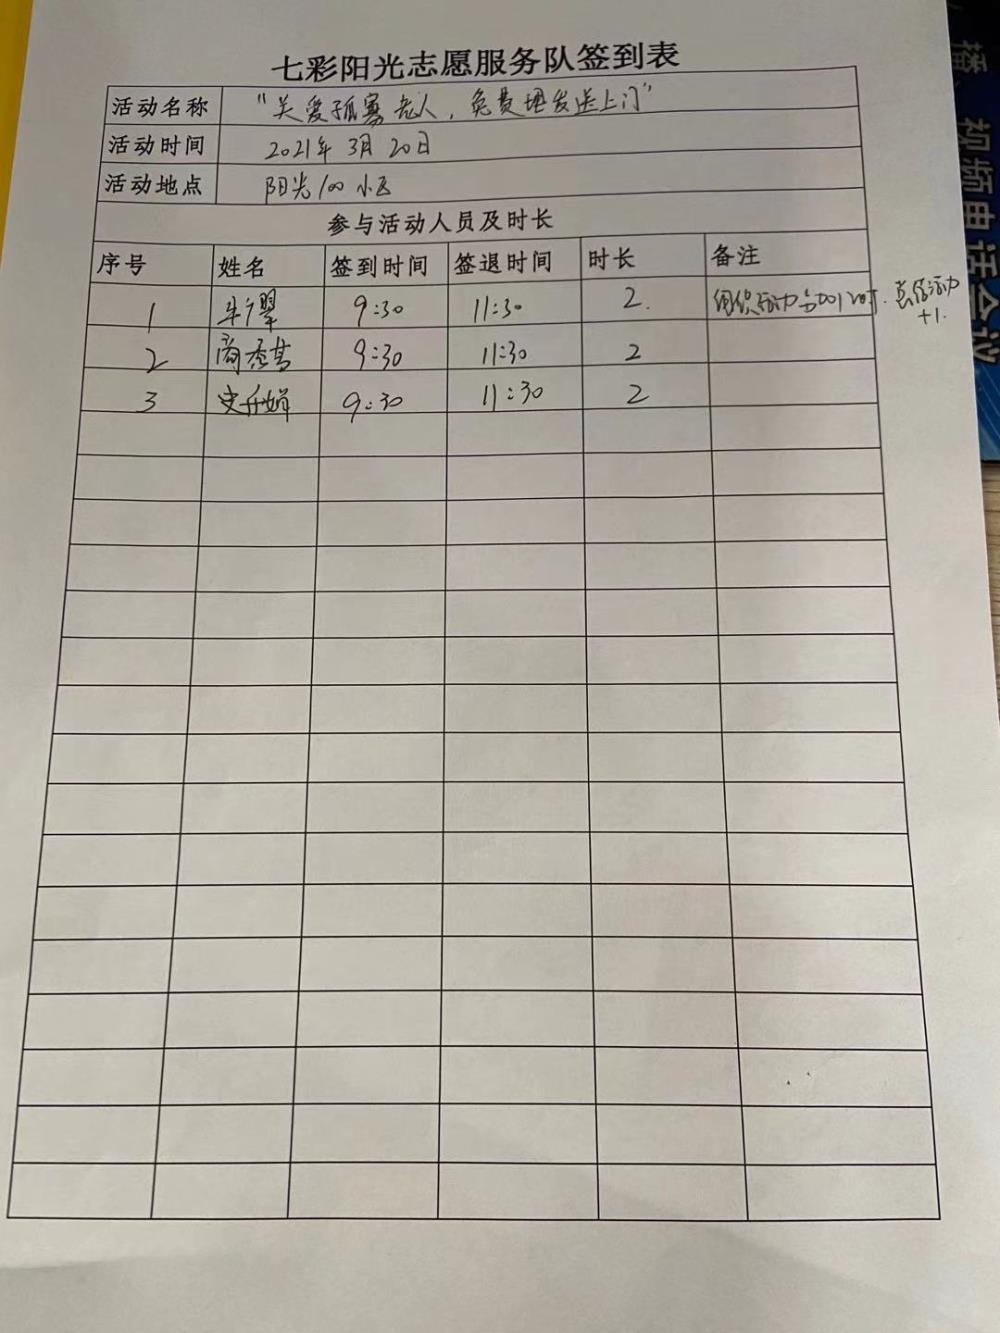 七彩阳光志愿服务队签到表
活动名称 "关爱孤寡老人，免费理发送上门"
活动时间 2021年 3月 20日
活动地点 阳光100小区
参与活动人员及时长
序号 姓名 签到时间 签退时间 时长 备注
1 9:30 11:30 2. 组织活动 +1.
2 9:30 11:30 2
3 9:30 11:30 2
视频电话会议